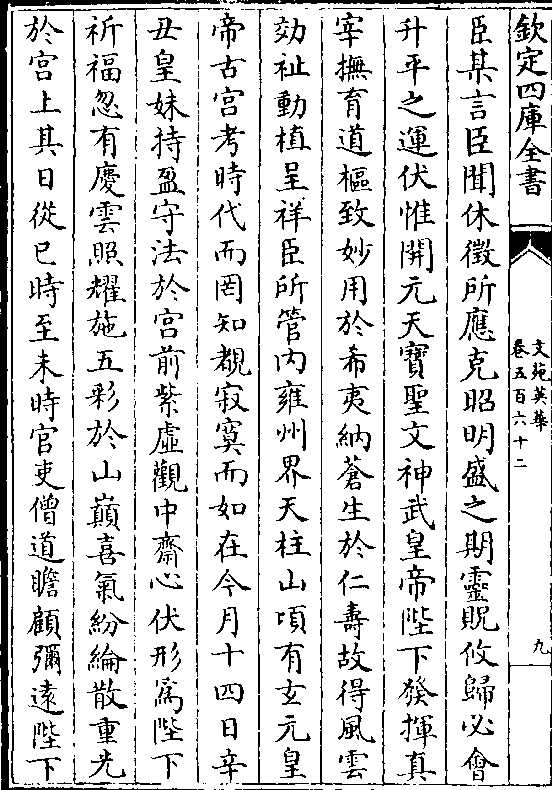 欽定四庫全書
文苑英華
卷五百六十二
九
臣某言臣聞休徵所應克昭明盛之期靈貺攸歸必會
升平之運伏惟開元天寶聖文神武皇帝陛下發揮真
宰撫育道樞致妙用於希夷納蒼生於仁壽故得風雲
効祉動植呈祥臣所管内雍州界天柱山頃有玄元皇
帝古宫考時代而罔知覩寂寞而如在今月十四日辛
丑皇妹持盈守法於宫前紫虛觀中齋心伏形為陛下
祈福忽有慶雲照耀施五彩於山巔喜氣紛綸散重光
於宫上其日從巳時至未時官吏僧道瞻顧彌遠陛下